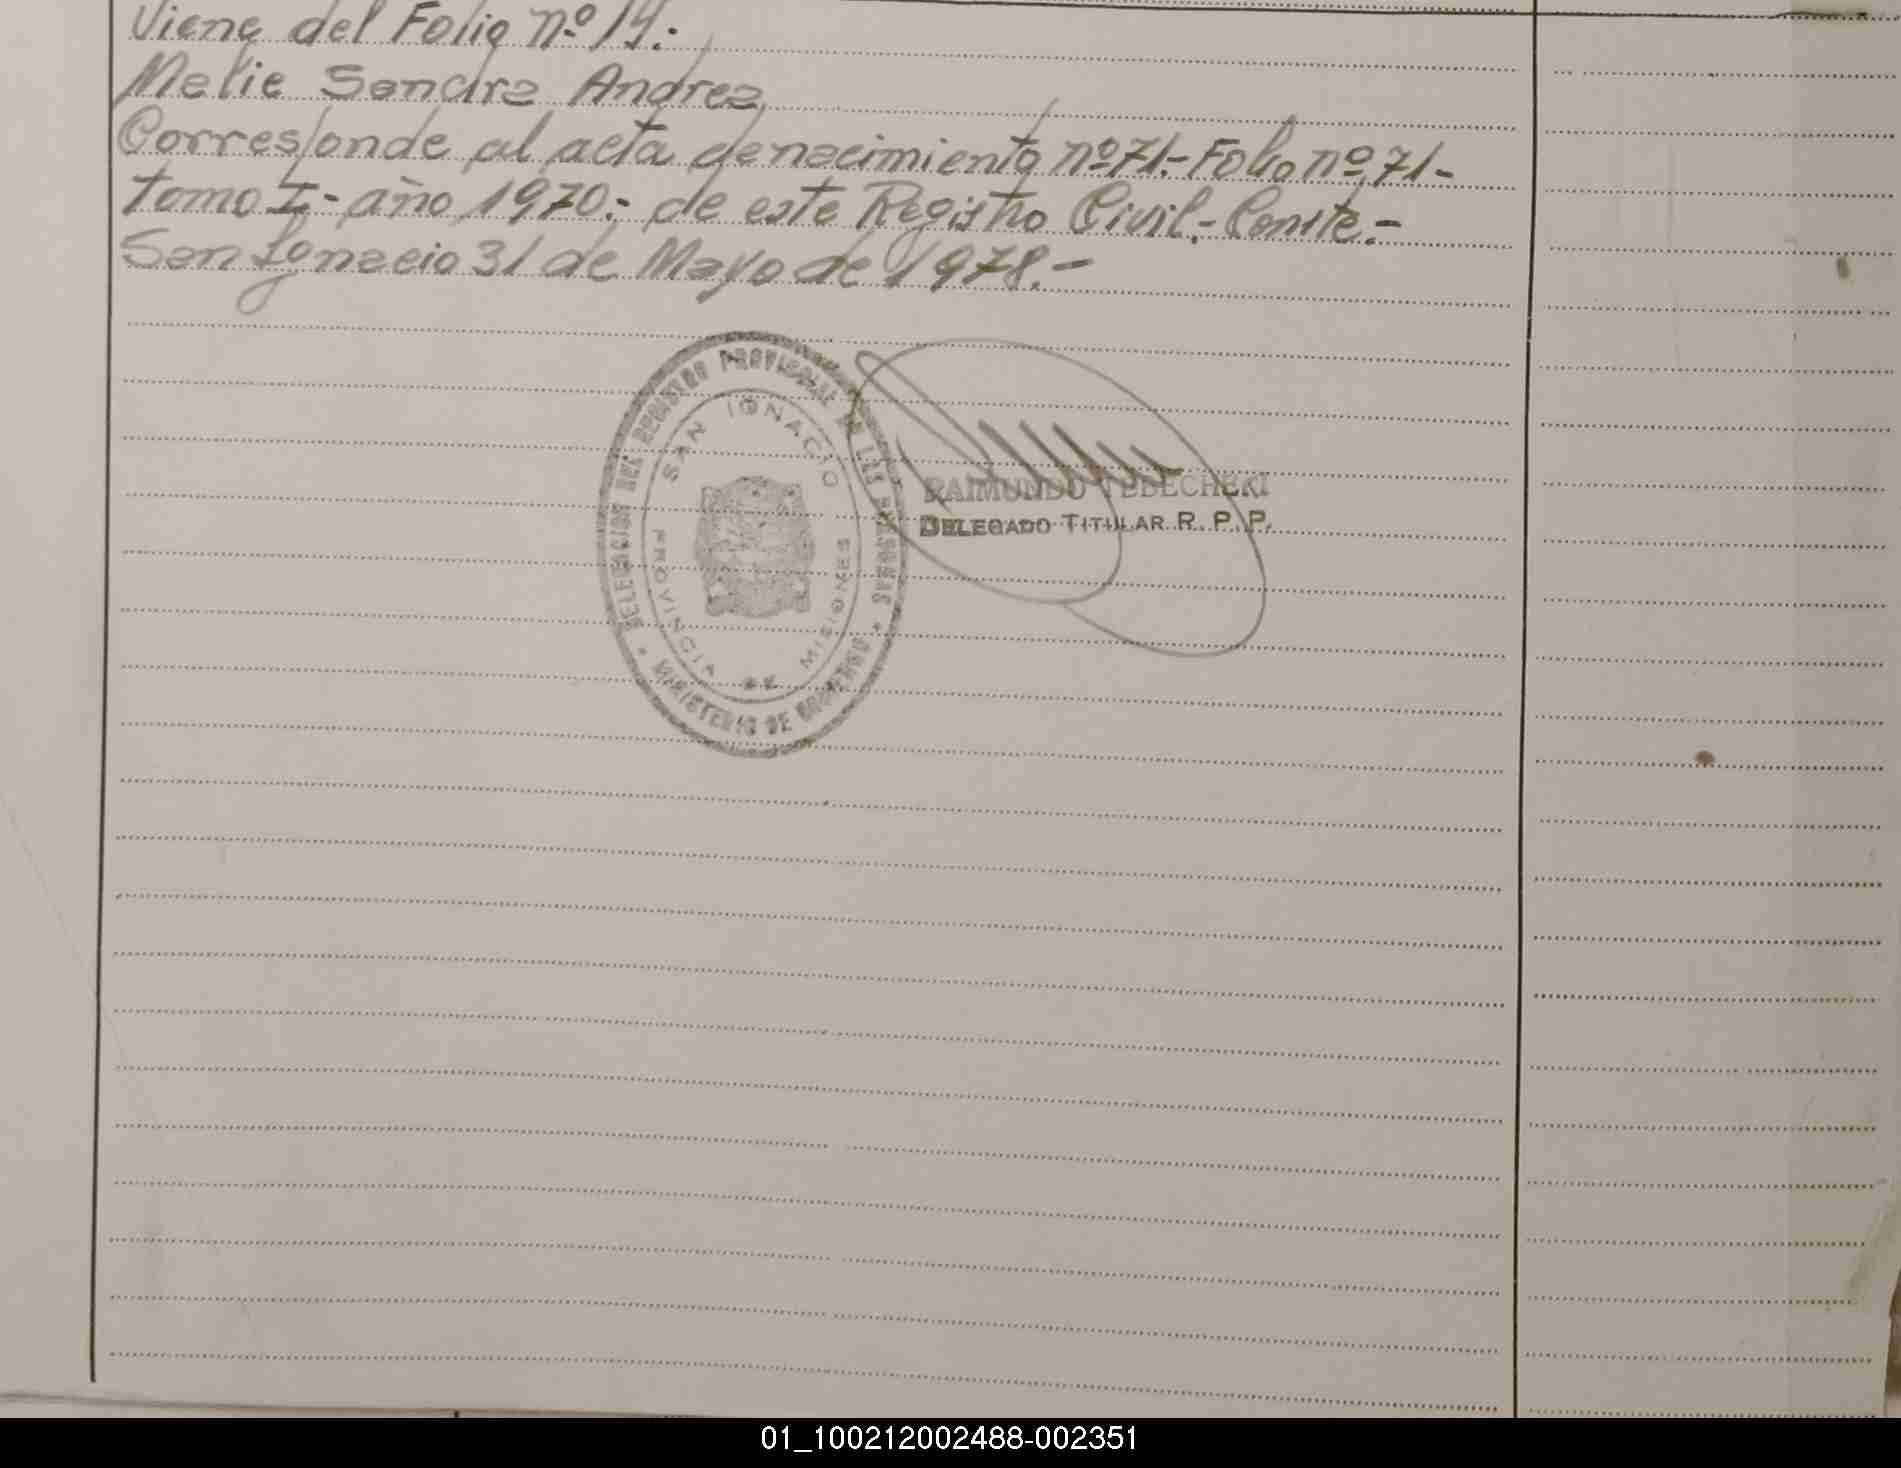 Viene del Folio nº 14.-
Melie Sandra Andrea
Corresponde al acta de nacimiento nº 71.- Folio nº 71-
tomo I- año 1970.- de este Registro Civil.- Conste.-
San Ignacio 31 de Mayo de 1978.-
DELEGACION DEL REGISTRO PROVINCIAL DE LAS PERSONAS
SAN IGNACIO
PROVINCIA DE MISIONES
MINISTERIO DE GOBIERNO
RAIMUNDO
DELEGADO TITULAR R. P. P.
01_100212002488-002351